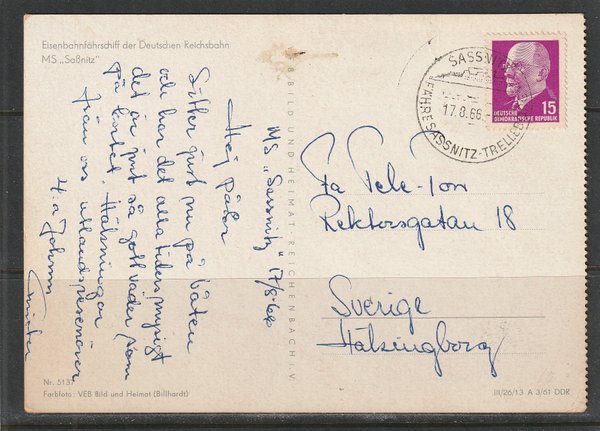 Eisenbahnfährschiff der Deutschen Reichsbahn
MS „Saßnitz"
MS „Sassnitz" 17/8-66
Hej på Er
Sitter just nu på båten
och har det alla tiders mysigt
det är just så gott väder som
på kortet. Hälsningar
från oss utlandsresenärer
Fa Tele-Ton
Rektorsgatan 18
Sverige
Hälsingborg
SASSNITZ
17.8.66
FÄHRE SASSNITZ-TRELLEBORG
15
DEUTSCHE
DEMOKRATISCHE REPUBLIK
BILD UND HEIMAT REICHENBACH I V
Nr. 5137
Farbfoto: VEB Bild und Heimat (Billhardt)
III/26/13 A 3/61 DDR